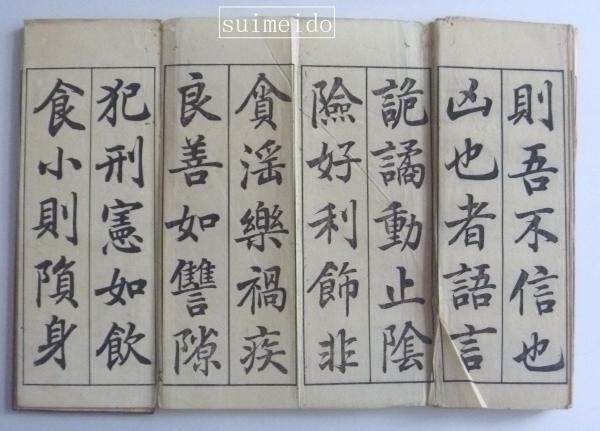 suimeido
則吾不信也
凶也者語言
詭譎動止陰
險好利飾非
貪滛樂禍疾
良善如讐隙
犯刑憲如飲
食小則隕身